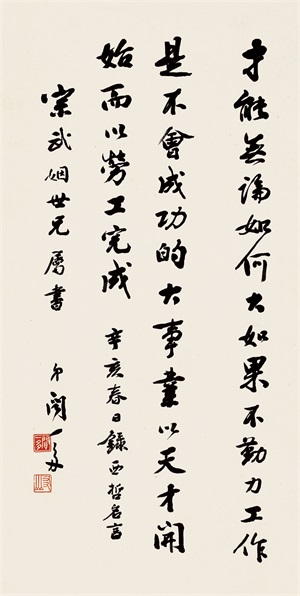 才能無論如何大如果不勤力工作
是不會成功的大事業以天才開
始而以勞工完成
辛亥春日錄西哲名言
宗武姻世兄屬書